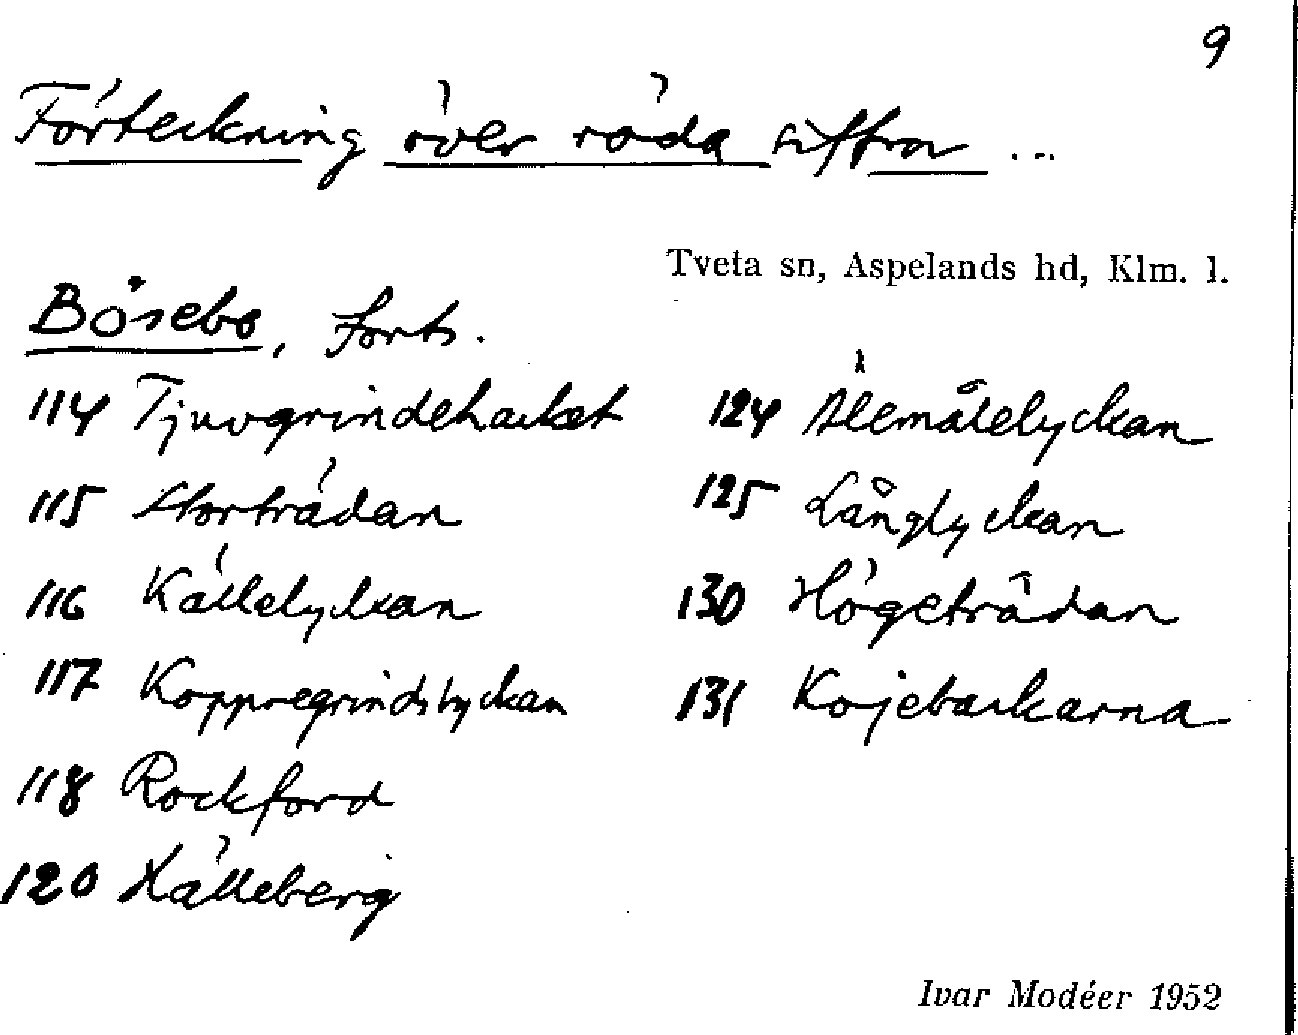 9
Förteckning över röda siffror ...
Tveta sn, Aspelands hd, Klm. l.
Bösebo, forts.
114 Tjuvgrindehacket
115 Storträdan
116 Källelyckan
117 Koppregrindslyckan
118 Rockford
120 Hälleberg
124 Ålemålelyckan
125 Långlyckan
130 Högeträdan
131 Kojebackarna
Ivar Modéer 1952